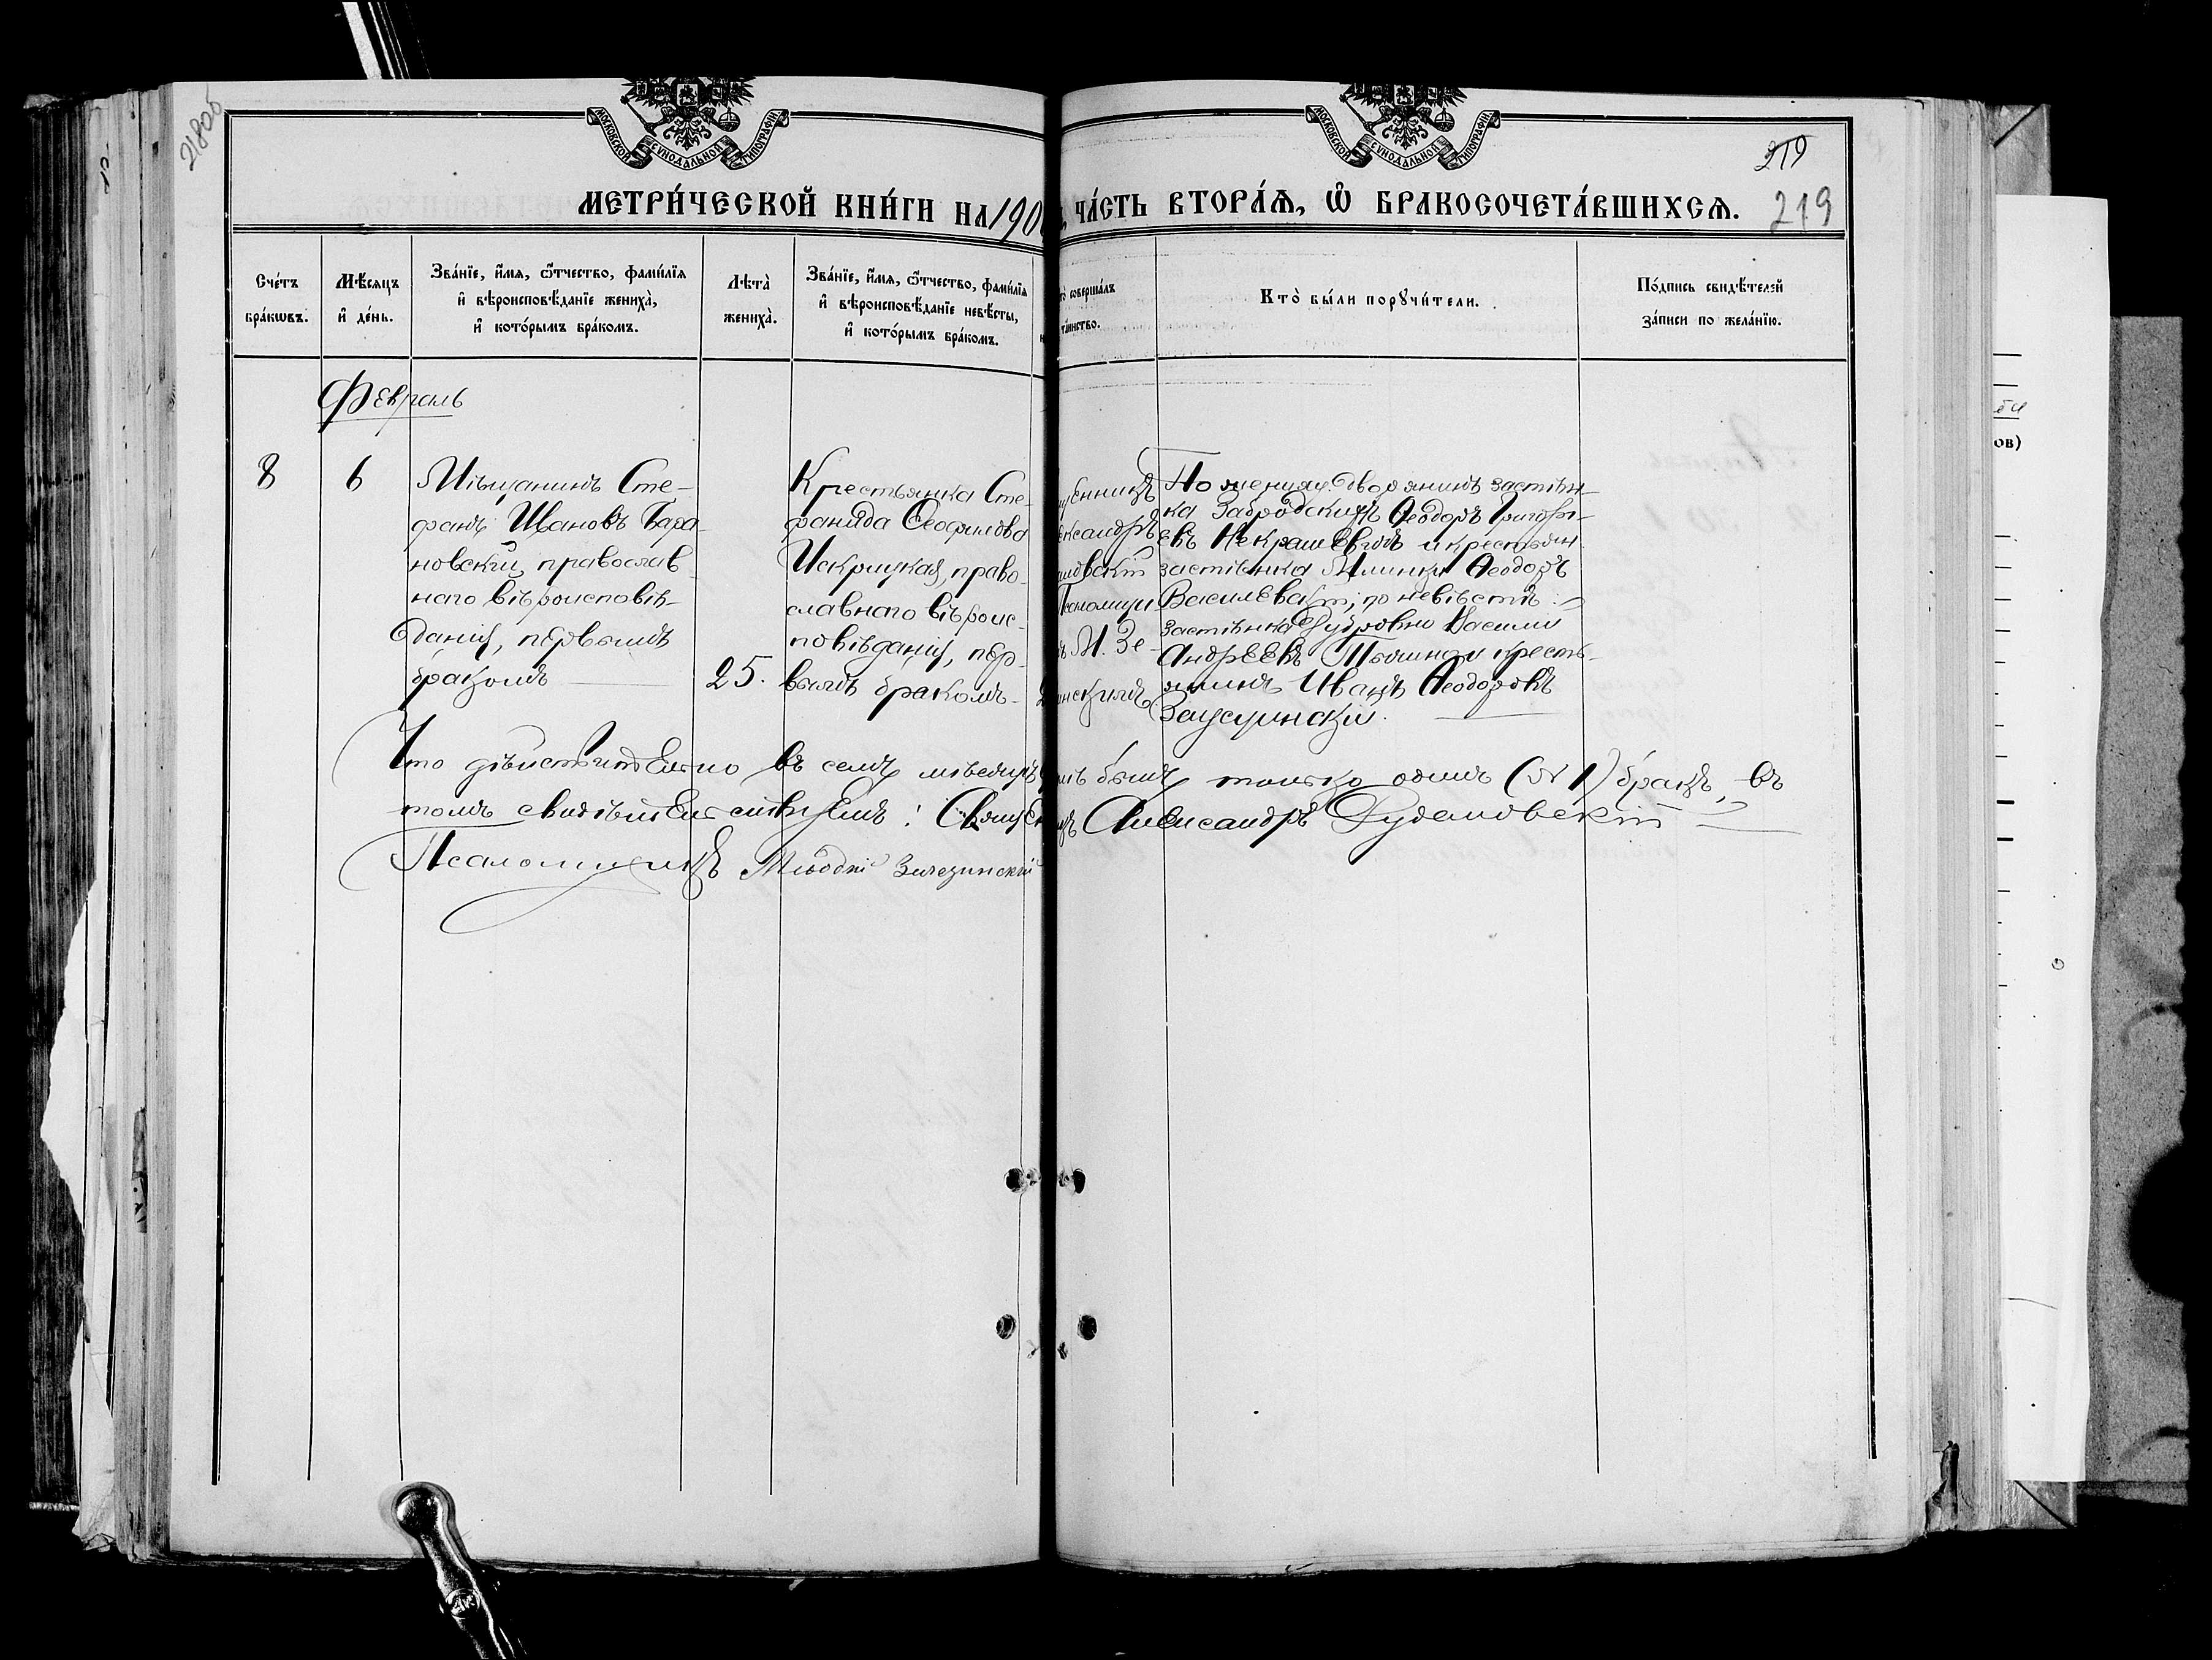 218об
МОСКОВСКОЙ СѴНОДАЛЬНОЙ ТИПОГРАФІИ
МОСКОВСКОЙ СѴНОДАЛЬНОЙ ТИПОГРАФІИ
219
МЕТРИ́ЧЕСКОЙ КНИ́ГИ НА 190
ЧА́СТЬ ВТОРА́Ѧ, Ѽ БРАКОСОЧЕТА́ВШИХСѦ. 219
Сче́тъ
бра́кѡвъ.
Мѣ́сяцъ
и҆ де́нь.
Зва́нїе, и҆́мѧ, ѻ҆́тчество, фами́лїѧ
и҆ вѣроисповѣ́данїе жениха̀,
и҆ кото́рымъ бра́комъ.
Лѣта̀
жениха̀.
Зва́нїе, и҆́мѧ, ѻ҆́тчество, фами́лїѧ
и҆ вѣроисповѣ́данїе невѣ́сты,
и҆ кото́рымъ бра́комъ.
соверша́лъ
та́инство.
Кто̀ бы́ли порꙋчи́тели.
По́дпись свидѣ́телей
за́писи по жела́нїю.
Февраль
8
6
Мѣщанинъ Сте-
фанъ Ивановъ Бара-
новскій, православ-
наго вѣроисповѣ-
данія, первымъ
бракомъ
25.
Крестьянка Сте-
фанида Ѳеофилова
Искрицкая, право-
славнаго вѣроис-
повѣданія, пер-
вымъ бракомъ
щенникъ
ександръ
овскій
Псаломщи
М. Зе-
инскимъ
По женихѣ: дворянинъ застѣн-
ка Забродскихъ Ѳеодоръ Григорі-
евъ Некрашевичъ и крестьян.
застѣнка Ѳеодоръ
Василевскій; по невѣстѣ:
застѣнка Дубровки Василій
Андреевъ и кресть-
янинъ Иванъ Ѳеодоровъ
Что дѣйствительно въ семъ мѣсяцѣ
былъ только одинъ (№ 1) бракъ, въ
томъ свидѣтельствуемъ: Священ
Александръ
Псаломщикъ Зилезинскій
ов)